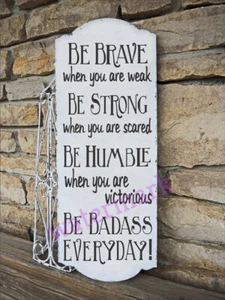 BE BRAVE
when you are weak
BE STRONG
when you are scared
BE HUMBLE
when you are
victorious
BE BADASS
EVERYDAY!
watermark